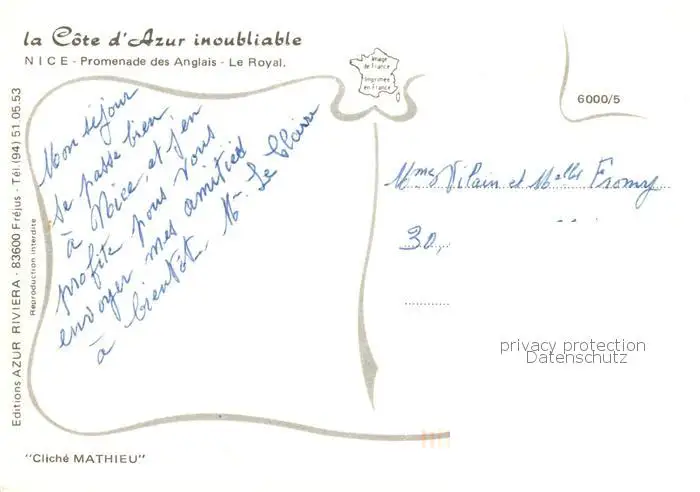 la Côte d'Azur inoubliable
NICE - Promenade des Anglais - Le Royal.
Image
de France
Imprimée
en France
6000/5
Mon séjour
se passe bien
à Nice, et j'en
profite pour vous
envoyer mes amitiés
à bientôt. M. Le Claire
Mmes Vilain et Melles Fromy
30,
privacy protection
Datenschutz
Editions AZUR RIVIERA - 83600 Fréjus - Tél. (94) 51.05.53
Reproduction interdite
"Cliché MATHIEU"